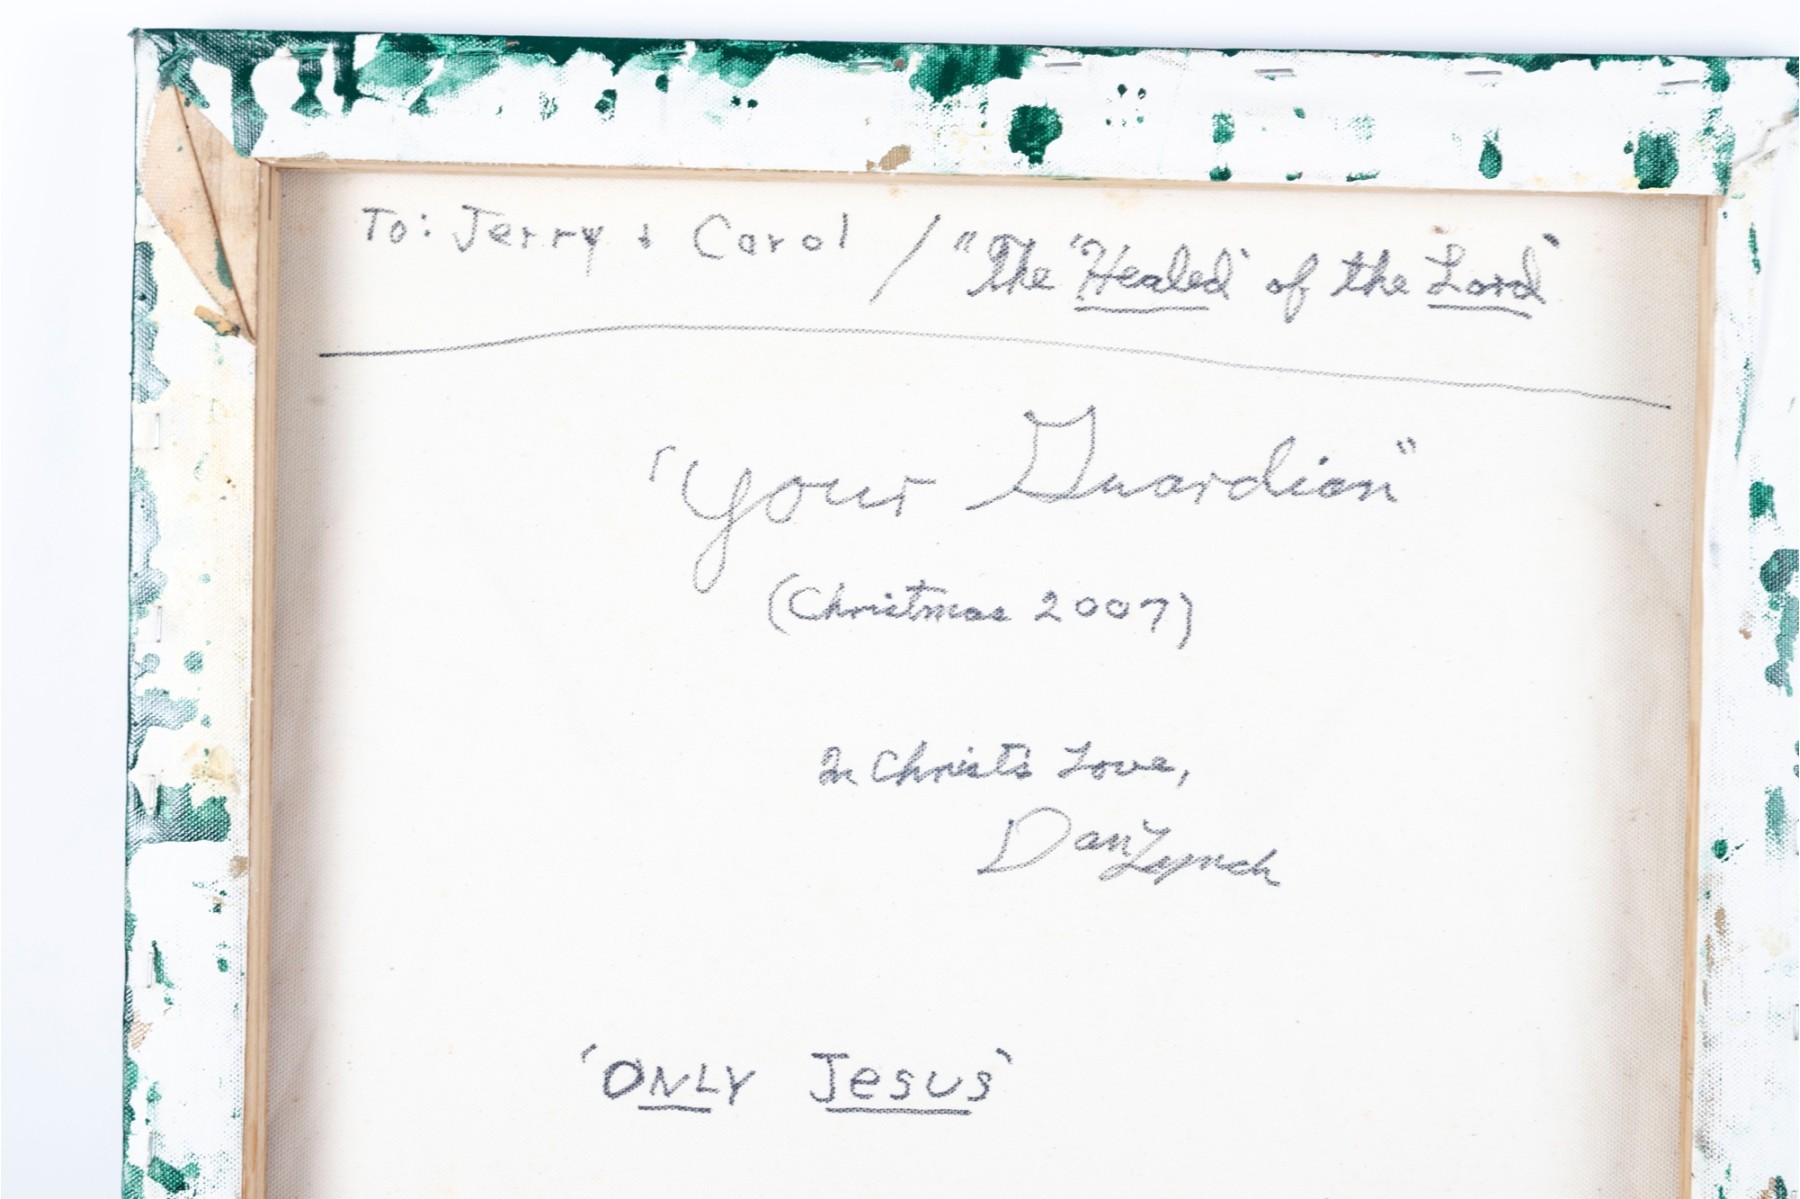 To: Jerry + Carol / "The 'Healed' of the Lord"
"Your Guardian"
(Christmas 2007)
In Christ's Love,
Dan Lynch
'ONLY Jesus'